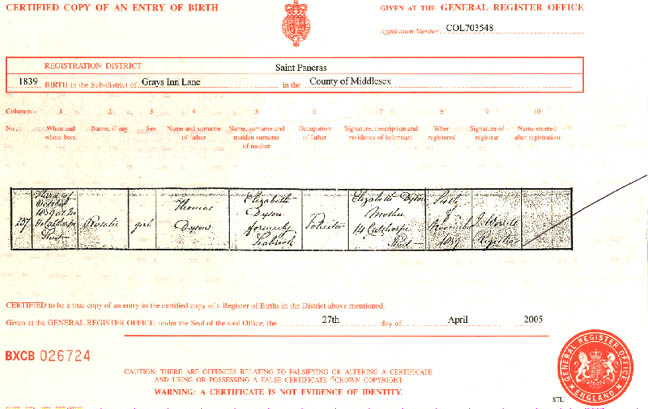 CERTIFIED COPY OF AN ENTRY OF BIRTH
GIVEN AT THE GENERAL REGISTER OFFICE
Application Number COL703548
REGISTRATION DISTRICT Saint Pancras
1839 BIRTH in the Sub-district of Grays Inn Lane in the County of Middlesex
Columns:- 1 2 3 4 5 6 7 8 9 10
No. When and where born Name, if any Sex Name and surname of father Name, surname and maiden surname of mother Occupation of father Signature, description and residence of informant When registered Signature of registrar Name entered after registration
October
1839 at
Rosalie girl
Thomas
Dyson
Elizabeth
Dyson
formerly
Seabrook
Elizabeth Dyson
Mother
14 Calthorpe
Street
1839
Registrar
CERTIFIED to be a true copy of an entry in the certified copy of a Register of Births in the District above mentioned.
Given at the GENERAL REGISTER OFFICE, under the Seal of the said Office, the 27th day of April 2005
BXCB 026724
CAUTION: THERE ARE OFFENCES RELATING TO FALSIFYING OR ALTERING A CERTIFICATE
AND USING OR POSSESSING A FALSE CERTIFICATE ©CROWN COPYRIGHT
WARNING: A CERTIFICATE IS NOT EVIDENCE OF IDENTITY.
GENERAL REGISTER OFFICE
ENGLAND
STL